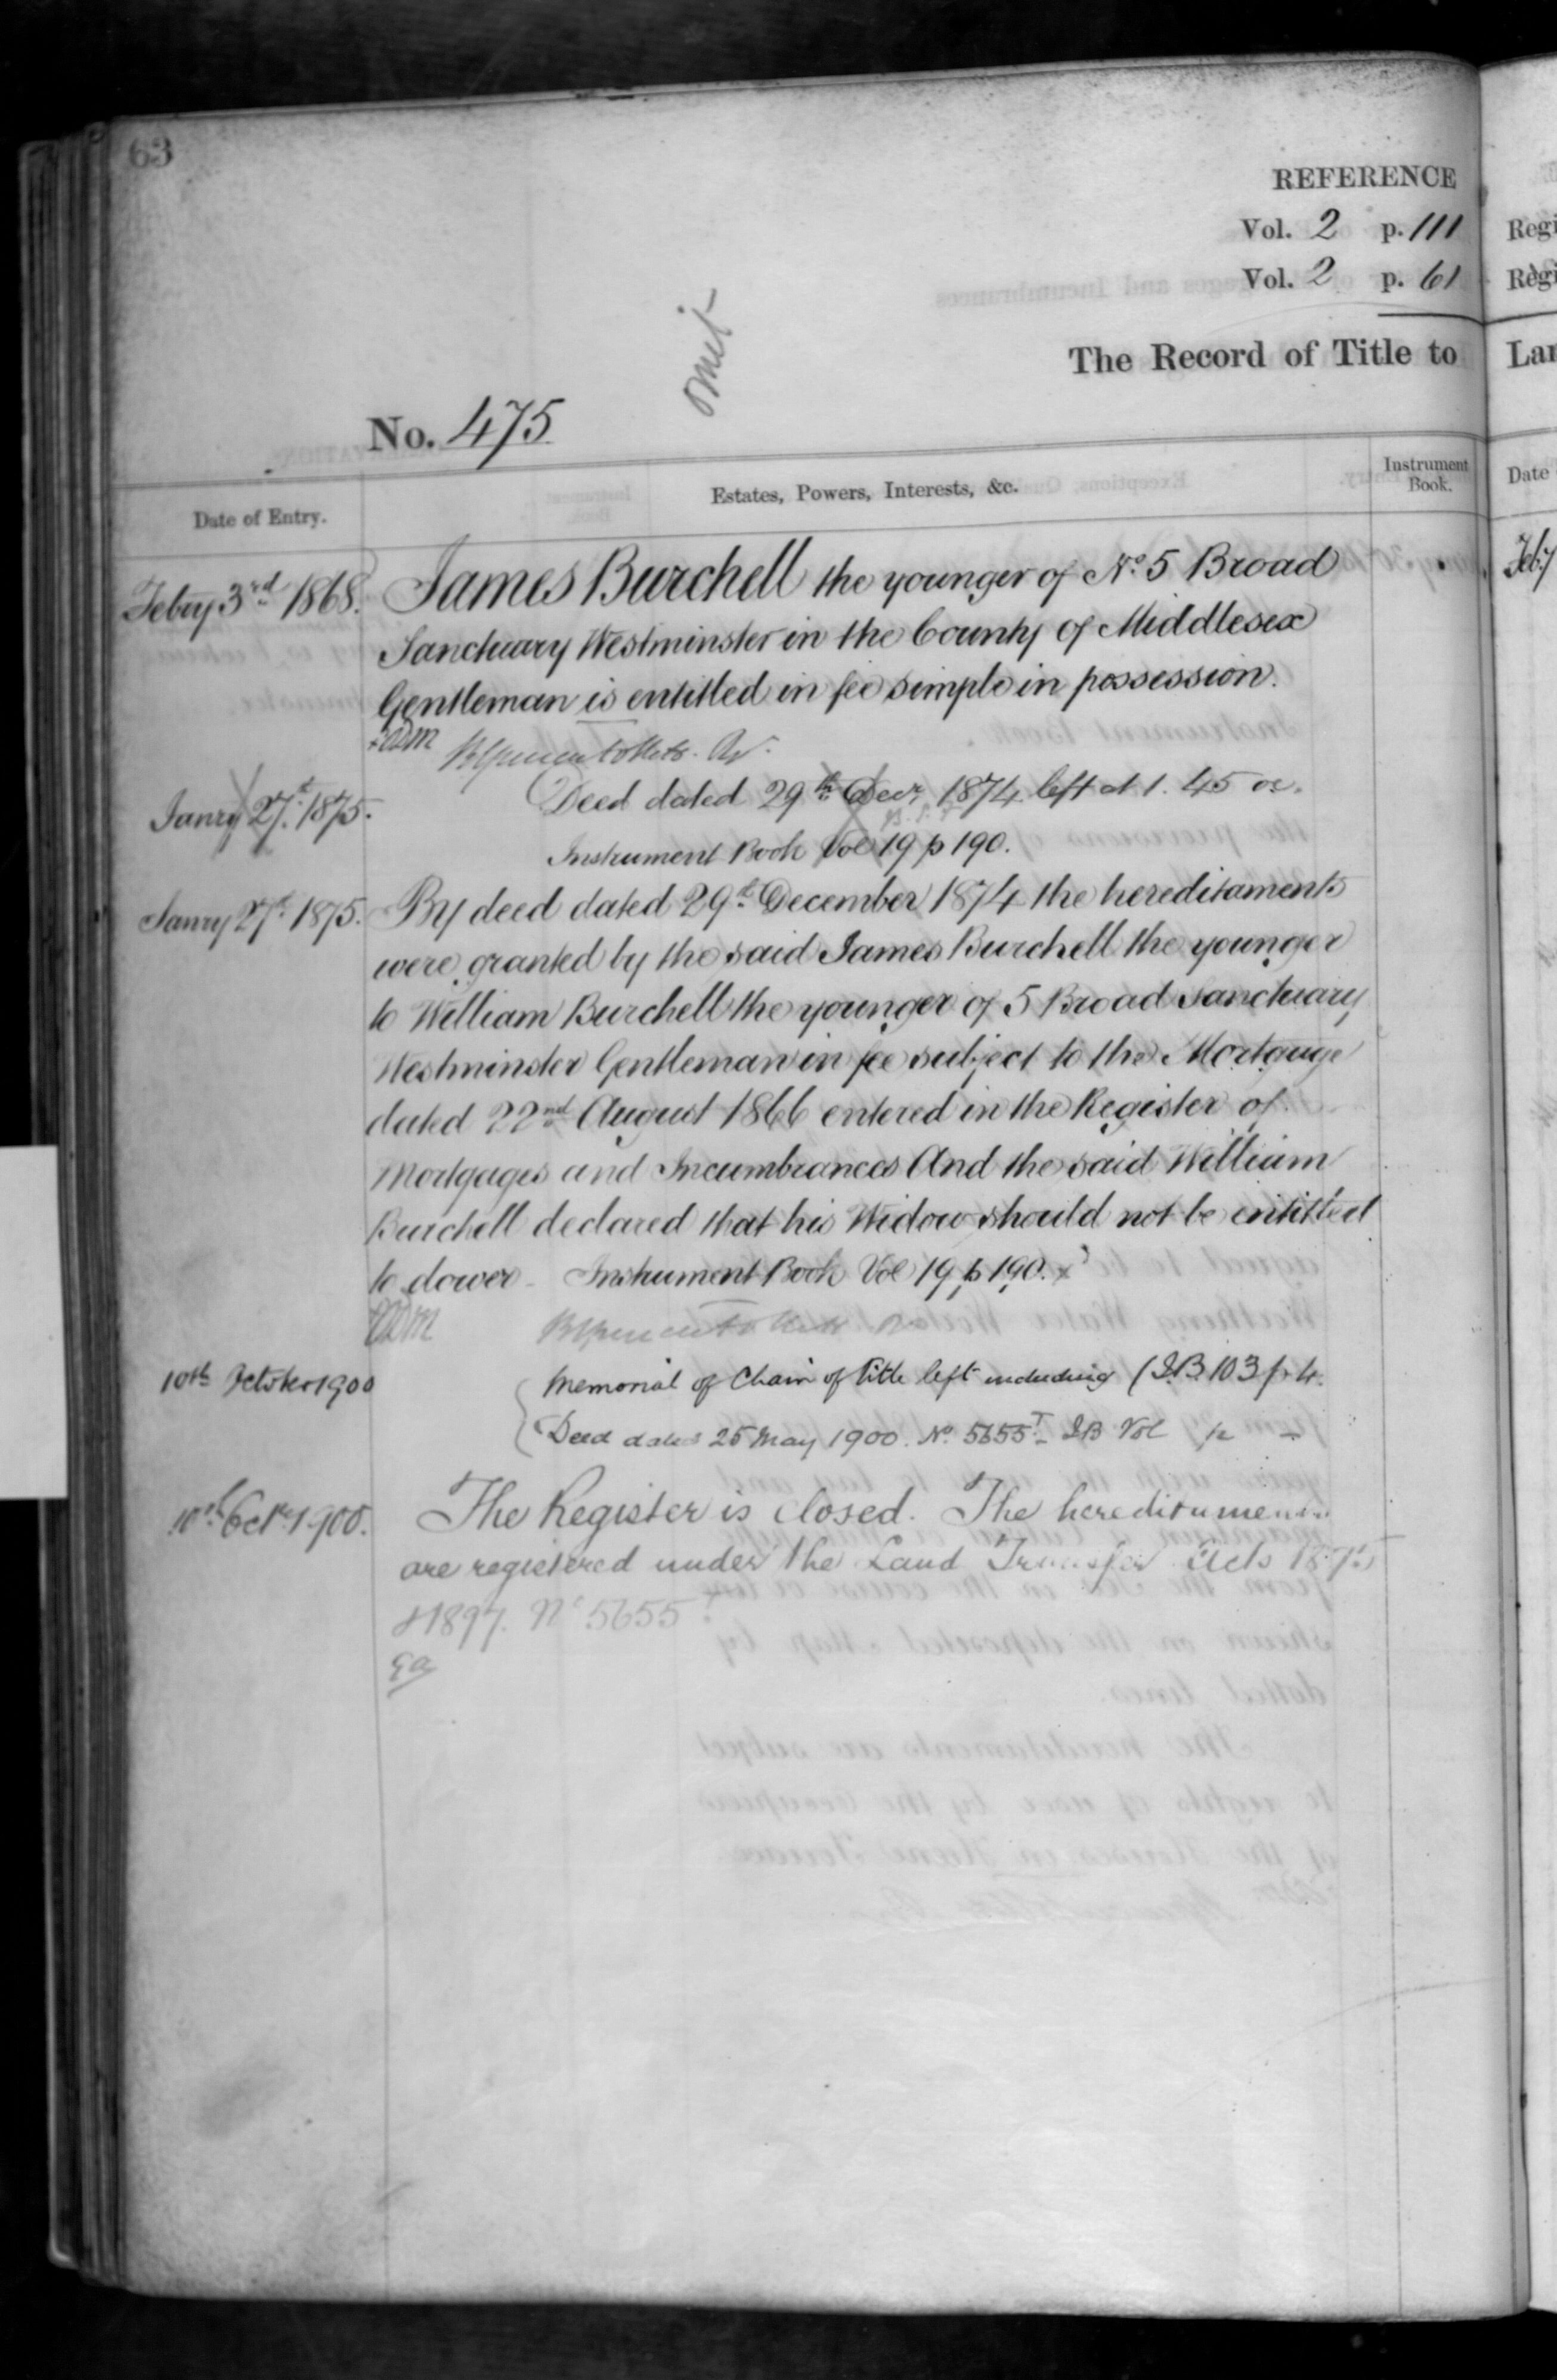 63
REFERENCE
Vol. 2 p. 111
Vol. 2 p. 61
omit
The Record of Title to
No. 475
Date of Entry.
Estates, Powers, Interests, &c.
Instrument Book.
Feby 3rd 1868. James Burchell the younger of No. 5 Broad
Sanctuary Westminster in the County of Middlesex
Gentleman is entitled in fee simple in possession.
Janry 27th 1875. Deed dated 29th Decr 1874 left at 1.45
Instrument Book Vol 19 p 190.
Janry 27th 1875. By deed dated 29th December 1874 the hereditaments
were granted by the said James Burchell the younger
to William Burchell the younger of 5 Broad Sanctuary
Westminster Gentleman in fee subject to the Mortgage
dated 22nd August 1866 entered in the Register of
Mortgages and Incumbrances And the said William
Burchell declared that his Widow should not be entitled
to dower - Instrument Book Vol 19 p 190.
10th October 1900 Memorial of Chain of Title left including (I.B. 103 p. 4.
Deed dated 25 May 1900. No. 5655T - IB Vol p -
10th Octr 1900. The Register is closed. The hereditaments
are registered under the Land Transfer Acts 1875
& 1897. No 5655
Regi
Regi
Lan
Date
Feby